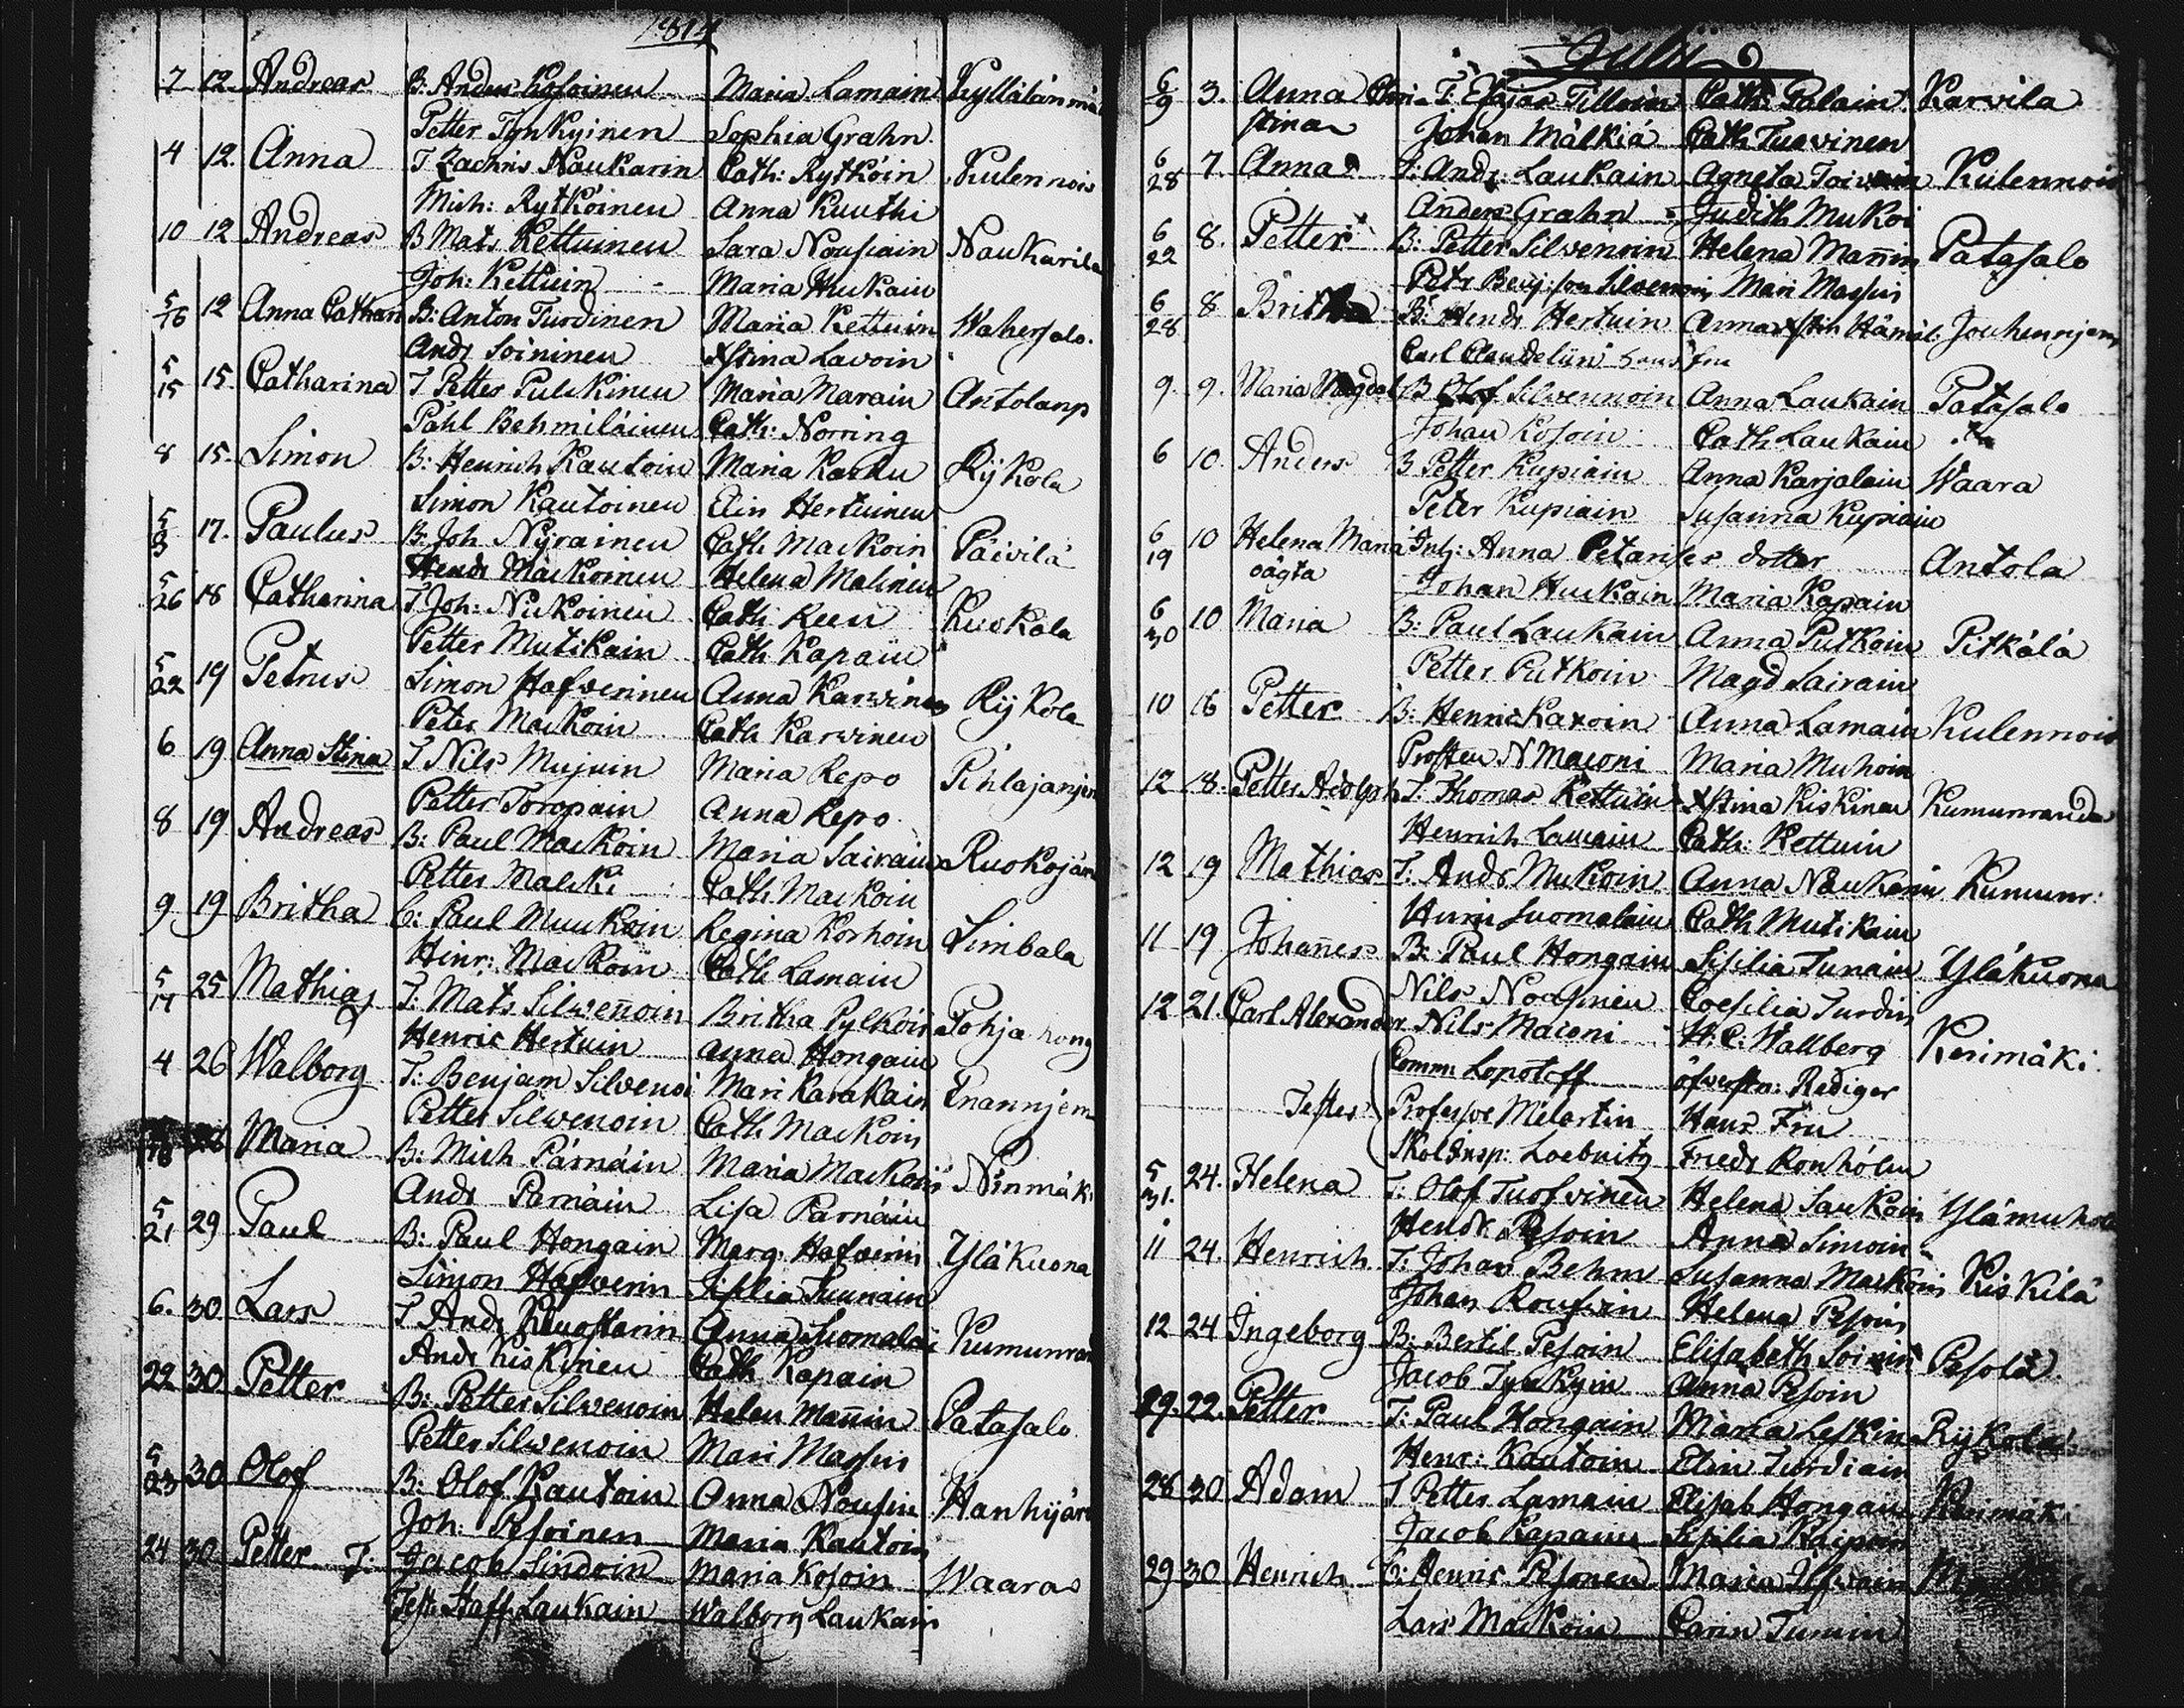 1814
7 12 Andreas B: Anders Kosoinen Maria Lamain Kyllälänmä
Petter Tynkyinen Sophia Grahn
4 12. Anna T Zachris Naukarin Cath: Rytköin Kulennois
Mich: Rytköinen Anna Kuuthi
10 12 Andreas B Mats Kettuinen Sara Nousiain Naukarila
Joh: Kettuin Maria Huckain
5/16 12 Anna Cathar B: Anton Turdinen Maria Kettuin Wahersalo.
Andr Soininen Xstina Lavoin
5/15 15 Catharina T Petter Pulckinen Maria Marain Antolanp
Pähl Behmiläinen Cath: Norring
8 15. Simon B: Henrich Kautoin Maria Karku Rijkola
Simon Kautoinen Elin Hertuinen
5/3 17. Paulus B: Joh Nyrainen Cath Mackoin Päivilä
Hendr Mackoinen Helena Malinin
5/26 18 Catharina T Joh: Nickoinen Cath Keen Kuokala
Petter Mutikain Cath Kapain
5/22 19 Petrus Simon Hafverinen Anna Karvinen Rijkola
Peter Mackoin Cath Karvinen
6 19 Anna Stina T Nils Mujuin Maria Repo Pihlajanjem
Petter Toropain Anna Repo
8 19 Andreas B: Paul Mackoin Maria Sairain Ruokojär
Petter Malcki Cath Mackoin
9 19 Britha C: Paul Muckoin Regina Korhoin Simbala
Hinr: Mackoin Cath Lamain
5/17 25 Mathias T: Mats Silwennoin Britha Pylköin Pohja hong
Henric Hertuin Anna Hongain
4 26 Walborg T: Benjam Silvenoi Mari Karakain Enannjem
Petter Silwenoin Cath Mackoin
18 Maria B: Mich Pärnäin Maria Mackoin Ninmäki
Andr Parnäin Lisa Pärnäin
5/21 29 Paul B: Paul Hongain Marg: Hafverin Yläkuona
Simon Hafverin Sisilia Tuunain
6. 30 Lars T Andr Kinostarin Anna Suomalai Kumunran
Andr Kiskinen Cath Kapain
22 30 Petter B: Petter Silwenoin Helen Mannin Patasalo
Petter Silwenoin Mari Massin
5/23 30 Olof B: Olof Kautoin Anna Nousin Hanhijär
Joh: Pesoinen Maria Kautoin
24 30 Petter T: Jacob Sindoin Maria Kosoin Waaras
Test: Staff Laukain Walborg Laukain
Julii
6/9 3. Anna Chri- T. Esajas Tilloin Cath: Palain Karvila
stina Johan Mälkiä Cath Tuovinen
6/28 7. Anna T: Andr: Laukain Agneta Toivain Kulennois
Anders Grahn Judith Mukoi
6/22 8. Petter B: Petter Silvenoin Helena Mannin Patasalo
Petr Benj:son Silvenoin Mari Massin
6/28 8 Britha B: Hendr Hertuin Anna Xstin Hämäl: Jouhennjem
Carl Claudelin hans fru
9. 9. Maria Magdal B Olof Silvennoin Anna Laukain Patasalo
Johan Kosoin Cath Laukain
6 10. Anders B Petter Kupiain Anna Karjalain Waara
Peter Kupiain Susanna Kupiain
6/19 10 Helena Maria Inh: Anna Petari​ses dotter Antola
oägta Johan Huckain Maria Kapain
6/30 10 Maria B: Paul Laukain Anna Putkoin Pitkälä
Petter Putkoin Magd Sairain
10 16 Petter B: Henric Kaxoin Anna Lamain Kulennois
Prosten N Maconi Maria Muhoin
12 18. Petter Adolph T. Thomas Kettuin Xstina Kiskinen Kumunranda
Henrich Lamain Cath: Kettuin
12 19 Mathias T: Andr Mukoin Anna Naukarin Kumunr:
Hinri Suomalain Cath Mutikain
11 19 Johannes B: Paul Hongain Sisilia Tunain Yläkuona
Nils Nousinen Coesilia Turdin
12 21. Carl Alexander Nils Maconi H: C: Wallberg Kerimäki.
Comm Lopotoff öfverstn: Rediger
Testes Professor Melartin Hans Fru
Skolinsp: Loebnitz Friedr Ronholm
5/31. 24. Helena T: Olof Tuofvinen Helena Saukoin Ylämuhola
Hendr Pesoin Anna Simoin
11 24. Henrich T: Johan Behm Susanna Mackoin Kiskilä
Johan Rousvin Helena Pesoin
12 24 Ingeborg B: Bertil Pesoin Elisabeth Soinin Pesola
Jacob Tynkyin Anna Pesoin
29. 22. Petter T: Paul Hongain Maria Leskin Rijkola
Henr: Kautoin Elin Turdiain
28 30 Adam T Petter Lamain Elisab Hongain Kerimäki
Jacob Kapain Sisilia Kaipain
29 30 Henrich C: Henric Pesonen Maria
Lars Mackoin Carin Turuin